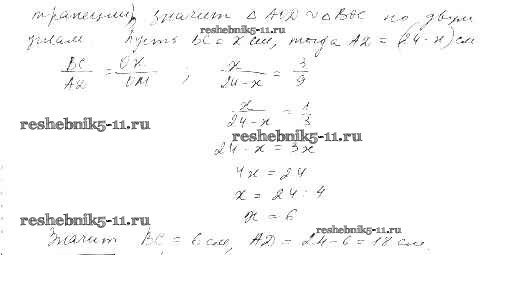 трапеции, значит △ AOD ∾ △ BOC по двум
reshebnik5-11.ru
углам Пусть BC = x см, тогда AD = (24-x) см
BC/AD = OK/OM ; x/(24-x) = 3/9
x/(24-x) = 1/3
reshebnik5-11.ru
reshebnik5-11.ru
24 - x = 3x
4x = 24
x = 24 : 4
x = 6
reshebnik5-11.ru
reshebnik5-11.ru
Значит BC = 6 см, AD = 24-6 = 18 см.